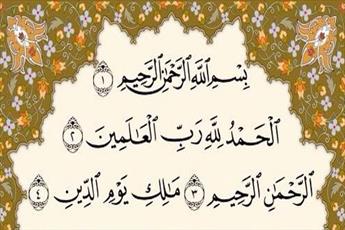 بِسْمِ اللَّهِ الرَّحْمَٰنِ الرَّحِيمِ ١
الْحَمْدُ لِلَّهِ رَبِّ الْعَالَمِينَ ٢
الرَّحْمَٰنِ الرَّحِيمِ ٣ مَالِكِ يَوْمِ الدِّينِ ٤